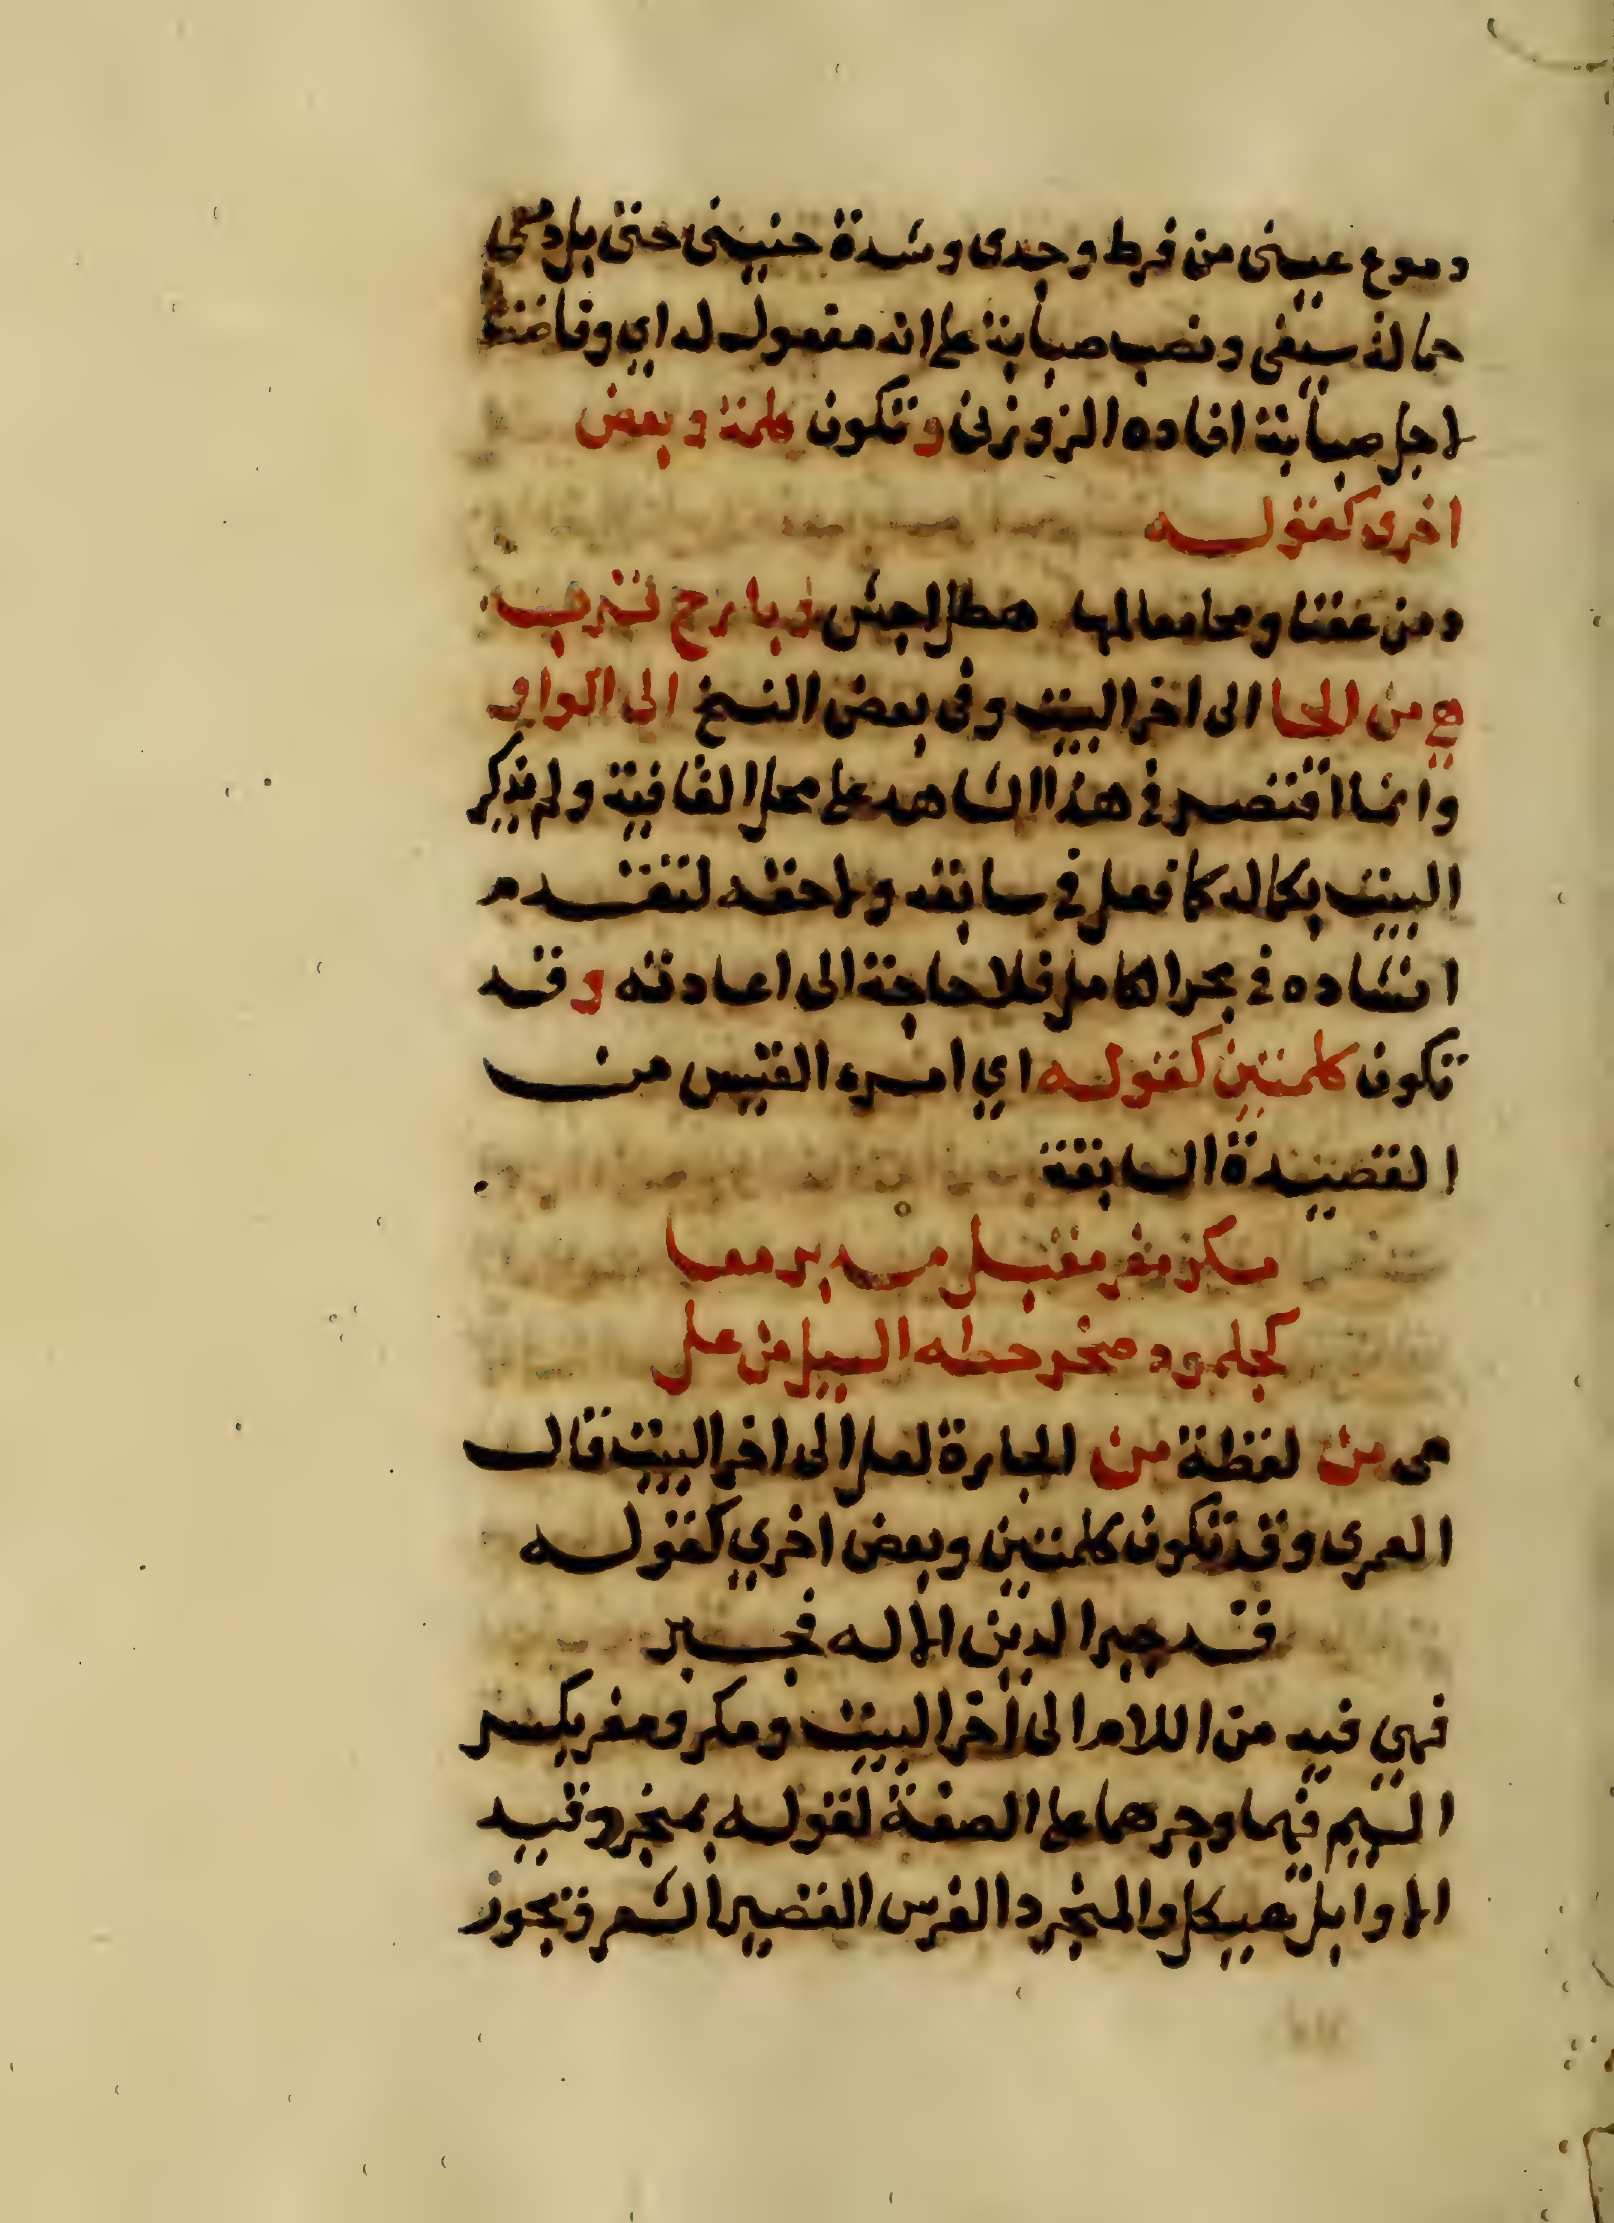 دموع عينى من فرط وجدى وشدة حنينى حتى بل دمعى
حمالة سيفى ونصب صبابة على انه مفعول له اي وفاضت
لاجل صبابة افاده الزوزنى وتكون كلمة وبعض
اخرى كقوله
دمن عفت ومحا معالمها هطل اجش وبارح ترب
هي من الحا الى اخر البيت وفى بعض النسخ الى الواو
وانما اقتصر فى هذا الشاهد على محل القافية ولم يذكر
البيت بكماله كما فعل فى سابقه ولاحقه لتقدم
انشاده فى بحر الكامل فلا حاجة الى اعادته وقد
تكون كلمتين كقوله اي امرء القيس من
القصيدة السابقة
مكر مفر مقبل مدبر معا
كجلمود صخر حطه السيل من عل
هى من لفظة من الجارة لعل الى اخر البيت قال
العمرى وقد تكون كلمتين وبعض اخري كقوله
قد جبر الدين الاله فجبر
فهي فيه من اللام الى اخر البيت ومكر ومفر بكسر
الميم فيهما وجرهما على الصفة لقوله بمنجرد قيد
الاوابد هيكل والمنجرد الفرس القصير الشعر ويجوز